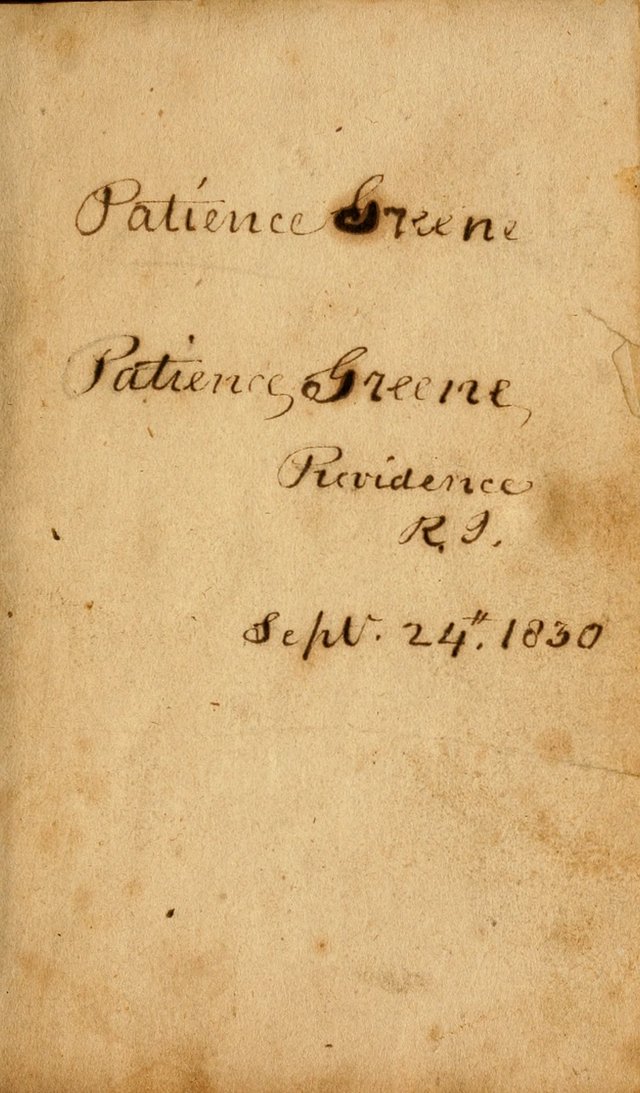 Patience Greene
Patience Greene,
Providence
R. I.
Sept. 24". 1830